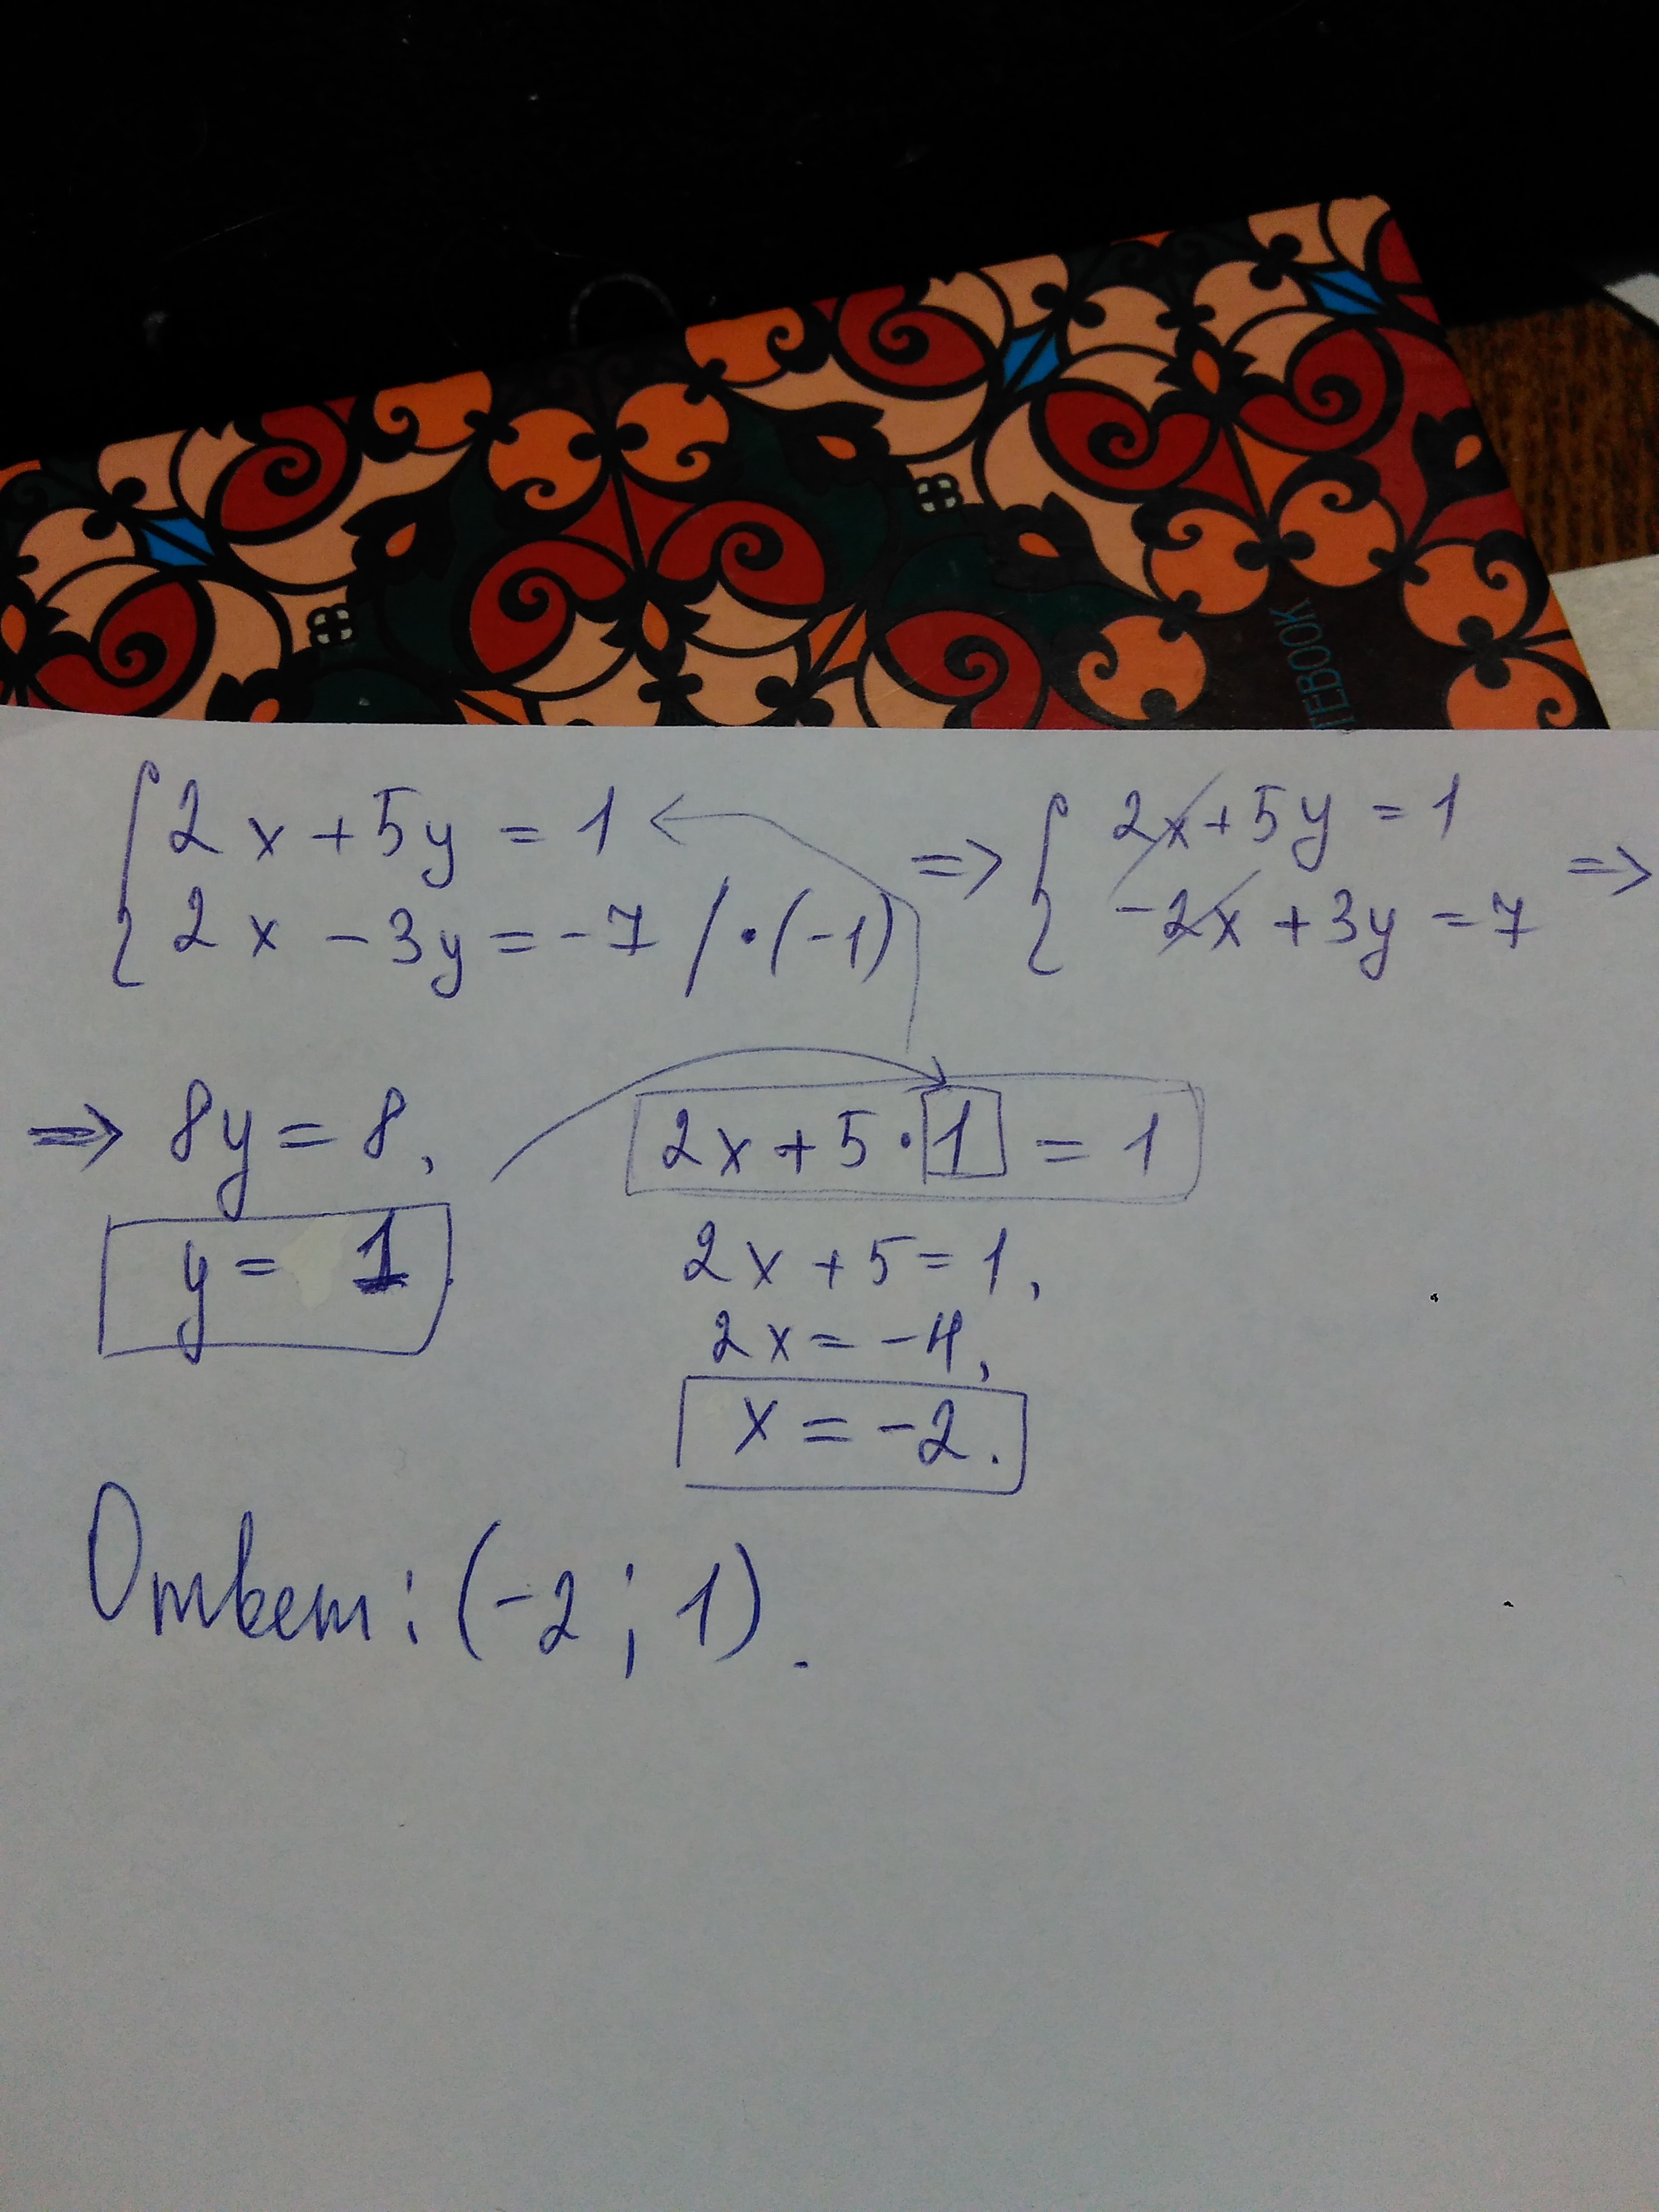 TEBOOK
{2x + 5y = 1 => {2x + 5y = 1 =>
2x - 3y = -7 / · (-1) -2x + 3y = 7
=> 8y = 8, 2x + 5 · 1 = 1
y = 1. 2x + 5 = 1,
2x = -4,
x = -2.
Ответ: (-2; 1).